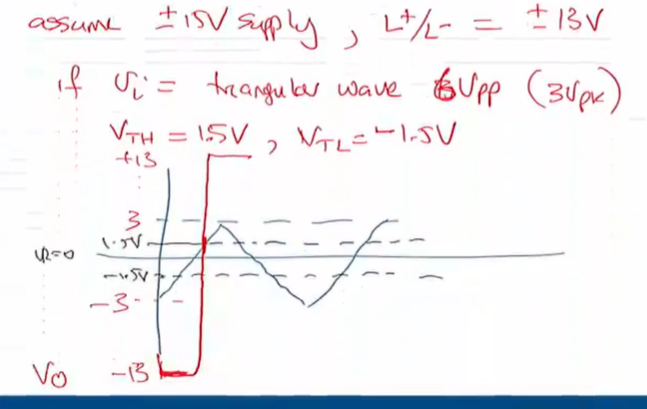 assume ±15V supply, L+/L- = ±13V
if Vi = triangular wave 6Vpp (3Vpk)
VTH = 1.5V, VTL = -1.5V
+13
3
1.5V
VR=0
-1.5V
-3
Vo -13